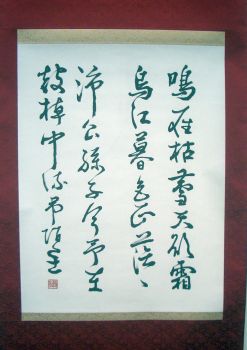 鳴雁枯天欲霜
烏江暮色正茫〻
沛公孫子今在
鼓棹中流弔項王